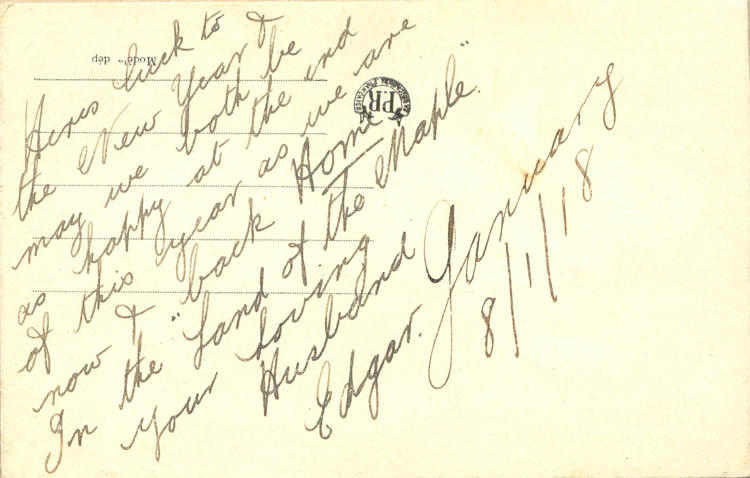 Heres luck to
the New Year &
may we both be
as happy at the end
of this year as we are
now & "back Home
In the "Land of the Maple".
your Loving
Husband
Edgar.
January
8/1/18
Modèle dép
PR